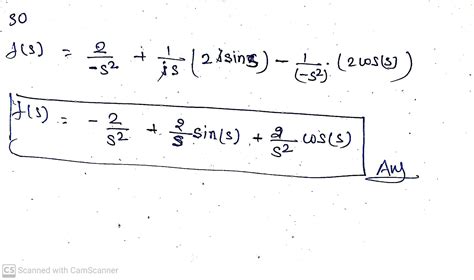 SO
f(s) = 2/-s² + 1/is (2isins) - 1/(-s²) · (2cos(s))
f(s) = - 2/s² + 2/s sin(s) + 2/s² cos(s)
Ans
CS Scanned with CamScanner